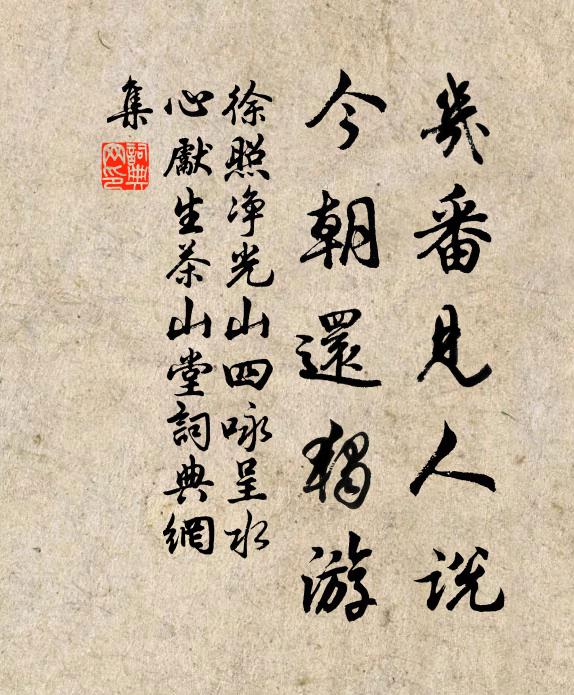 幾番見人說
今朝還獨游
徐照净光山四咏呈水
心獻生茶山堂詞典網
集
詞典
网印